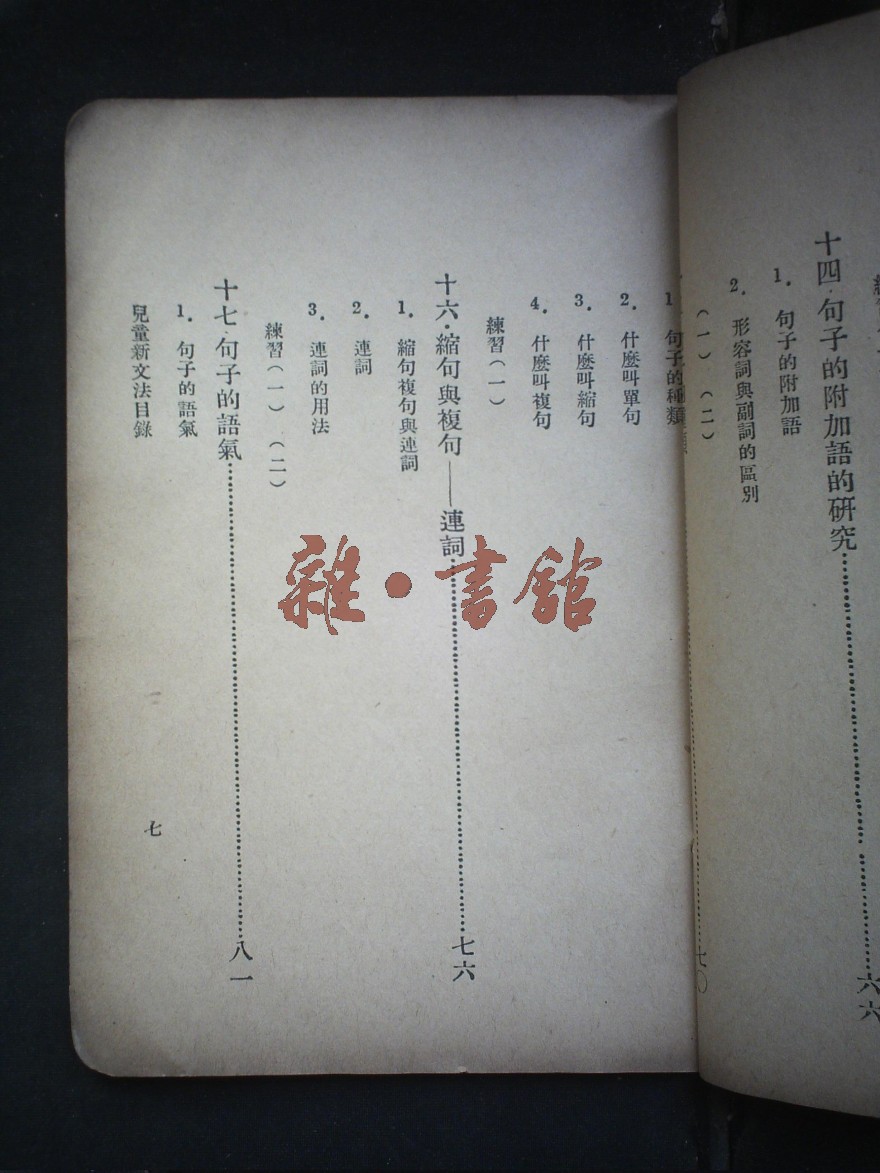 十四．句子的附加語的研究……六六
1．句子的附加語
2．形容詞與副詞的區別
（一）（二）
七〇
1．句子的種類
2．什麼叫單句
3．什麼叫縮句
4．什麼叫複句
練習（一）
十六．縮句與複句——連詞……七六
1．縮句複句與連詞
2．連詞
3．連詞的用法
練習（一）（二）
十七．句子的語氣……八一
1．句子的語氣
兒童新文法目錄
七
雜・書館